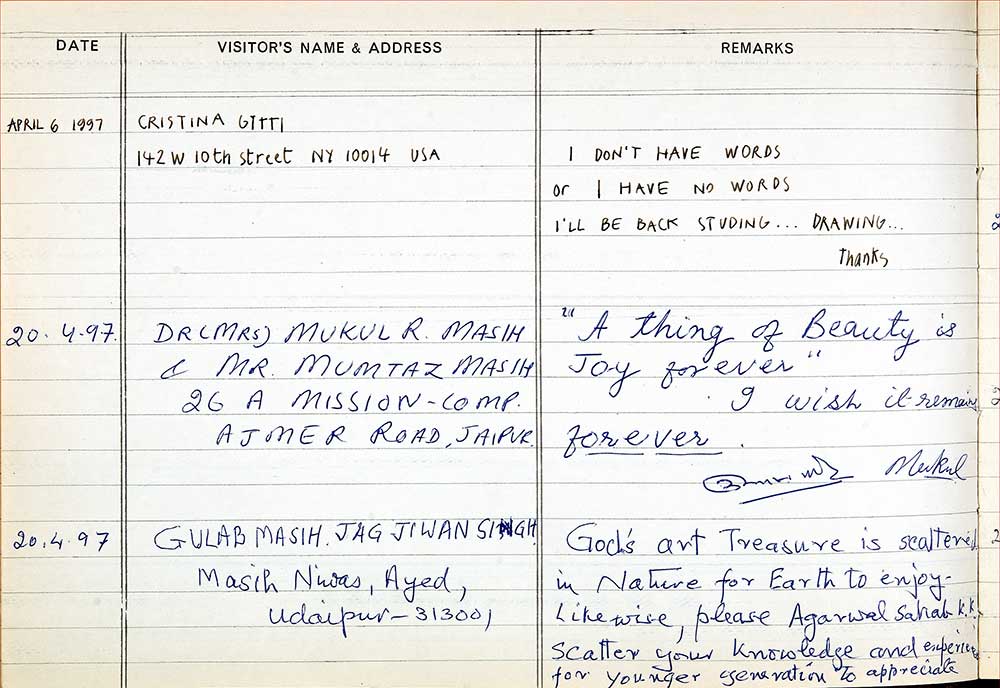 DATE VISITOR'S NAME & ADDRESS REMARKS
APRIL 6 1997 CRISTINA GITTI
142 W 10th street NY 10014 USA
I DON'T HAVE WORDS
or I HAVE NO WORDS
I'LL BE BACK STUDING... DRAWING...
Thanks
20.4.97. DR(MRS) MUKUL R. MASIH
& MR. MUMTAZ MASIH
26 A MISSION-COMP.
AJMER ROAD, JAIPUR.
"A thing of Beauty is
Joy forever"
I wish it remains
forever.
Mukul
20.4.97 GULAB MASIH. JAG JIWAN SINGH.
Masih Niwas, Ayed,
Udaipur-313001
God's art Treasure is scattered
in Nature for Earth to enjoy-
Likewise, please Agarwal Sahab K.K.
Scatter your knowledge and
for younger generation to appreciate